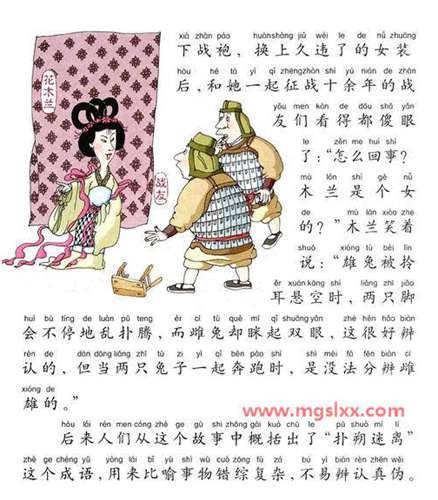 xià zhàn páo huànshàng jiǔ wéi le de nǚ zhuāng
下战袍，换上久违了的女装
hòu hé tā yì qǐ zhēngzhàn shí yú nián de zhàn
后，和她一起征战十余年的战
yǒu men kàn de dōu shǎ yǎn
友们看得都傻眼
le zěn me huí shì
了：“怎么回事？
mù lán shì gè nǚ
木兰是个女
de mù lán xiào zhe
的？”木兰笑着
shuō xióng tù bèi līn
说：“雄兔被拎
ěr xuánkōng shí liǎng zhī jiǎo
耳悬空时，两只脚
huì bù tíng de luàn pū teng ér cí tù què mī qǐ shuāngyǎn zhè hěn hǎo biàn
会不停地乱扑腾，而雌兔却眯起双眼，这很好辨
rèn de dàn dāng liǎng zhī tù zi yì qǐ bēn pǎo shí shì méi fǎ fēn biàn cí
认的，但当两只兔子一起奔跑时，是没法分辨雌
xióng de
雄的。”
www.mgslxx.com
hòu lái rén men cóng zhè ge gù shi zhōng gài kuò chū le pū shuò mí lí
后来人们从这个故事中概括出了“扑朔迷离”
zhè ge chéng yǔ yòng lái bǐ yù shì wù cuò zōng fù zá bù yì biàn rèn zhēn wěi
这个成语，用来比喻事物错综复杂，不易辨认真伪。
花木兰
战友